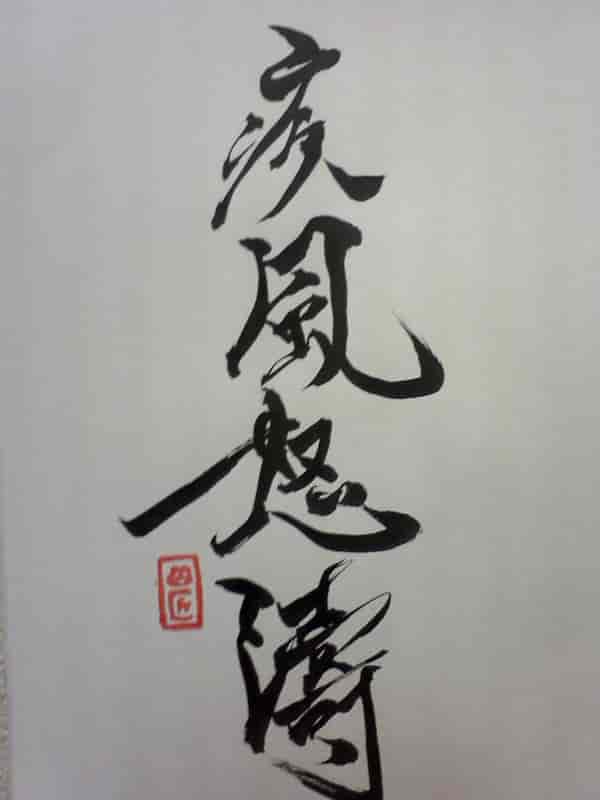 疾風怒濤